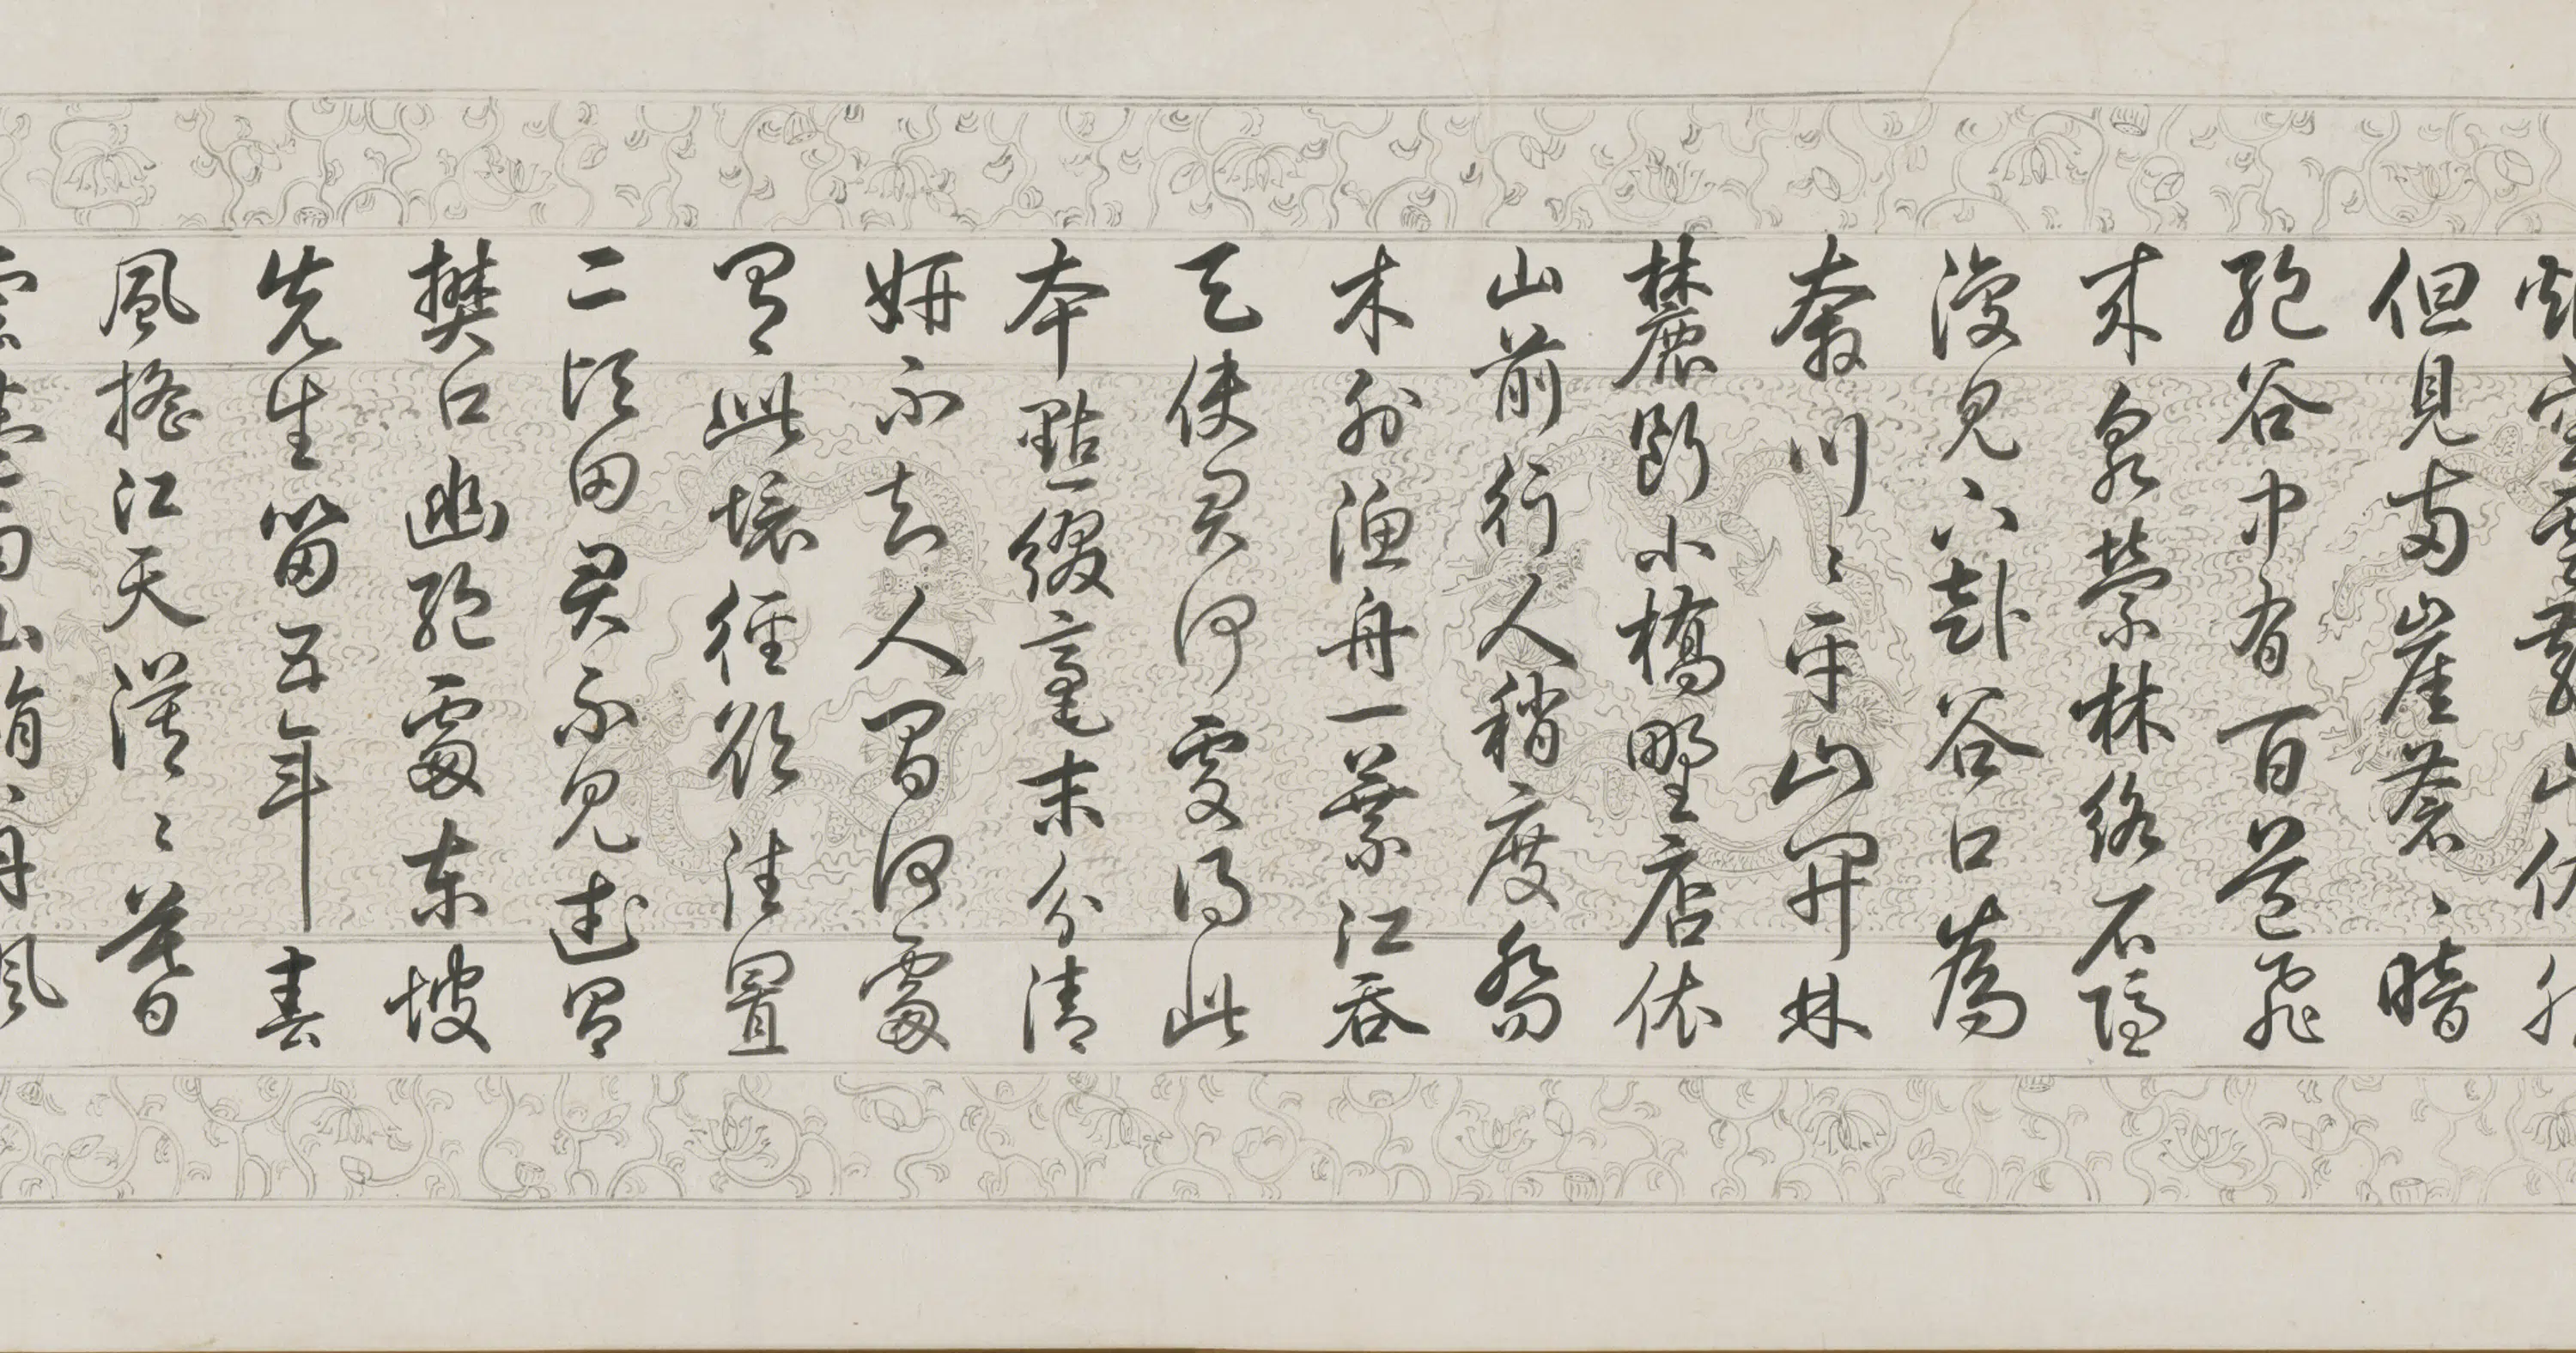 煙空雲散山依然
但見兩崖蒼〻暗
絕谷中有百道飛
來泉縈林絡石隱
復見下赴谷口為
奔川〻平山開林
麓斷小橋野店依
山前行人稍度喬
木外漁舟一葉江吞
天使君何處得此
本點綴毫末分清
妍不知人間何處
有此境徑欲往置
二頃田君不見武昌
樊口幽絕處東坡
先生留五年春
風搖江天漠〻暮
雲卷雨山娟〻丹楓